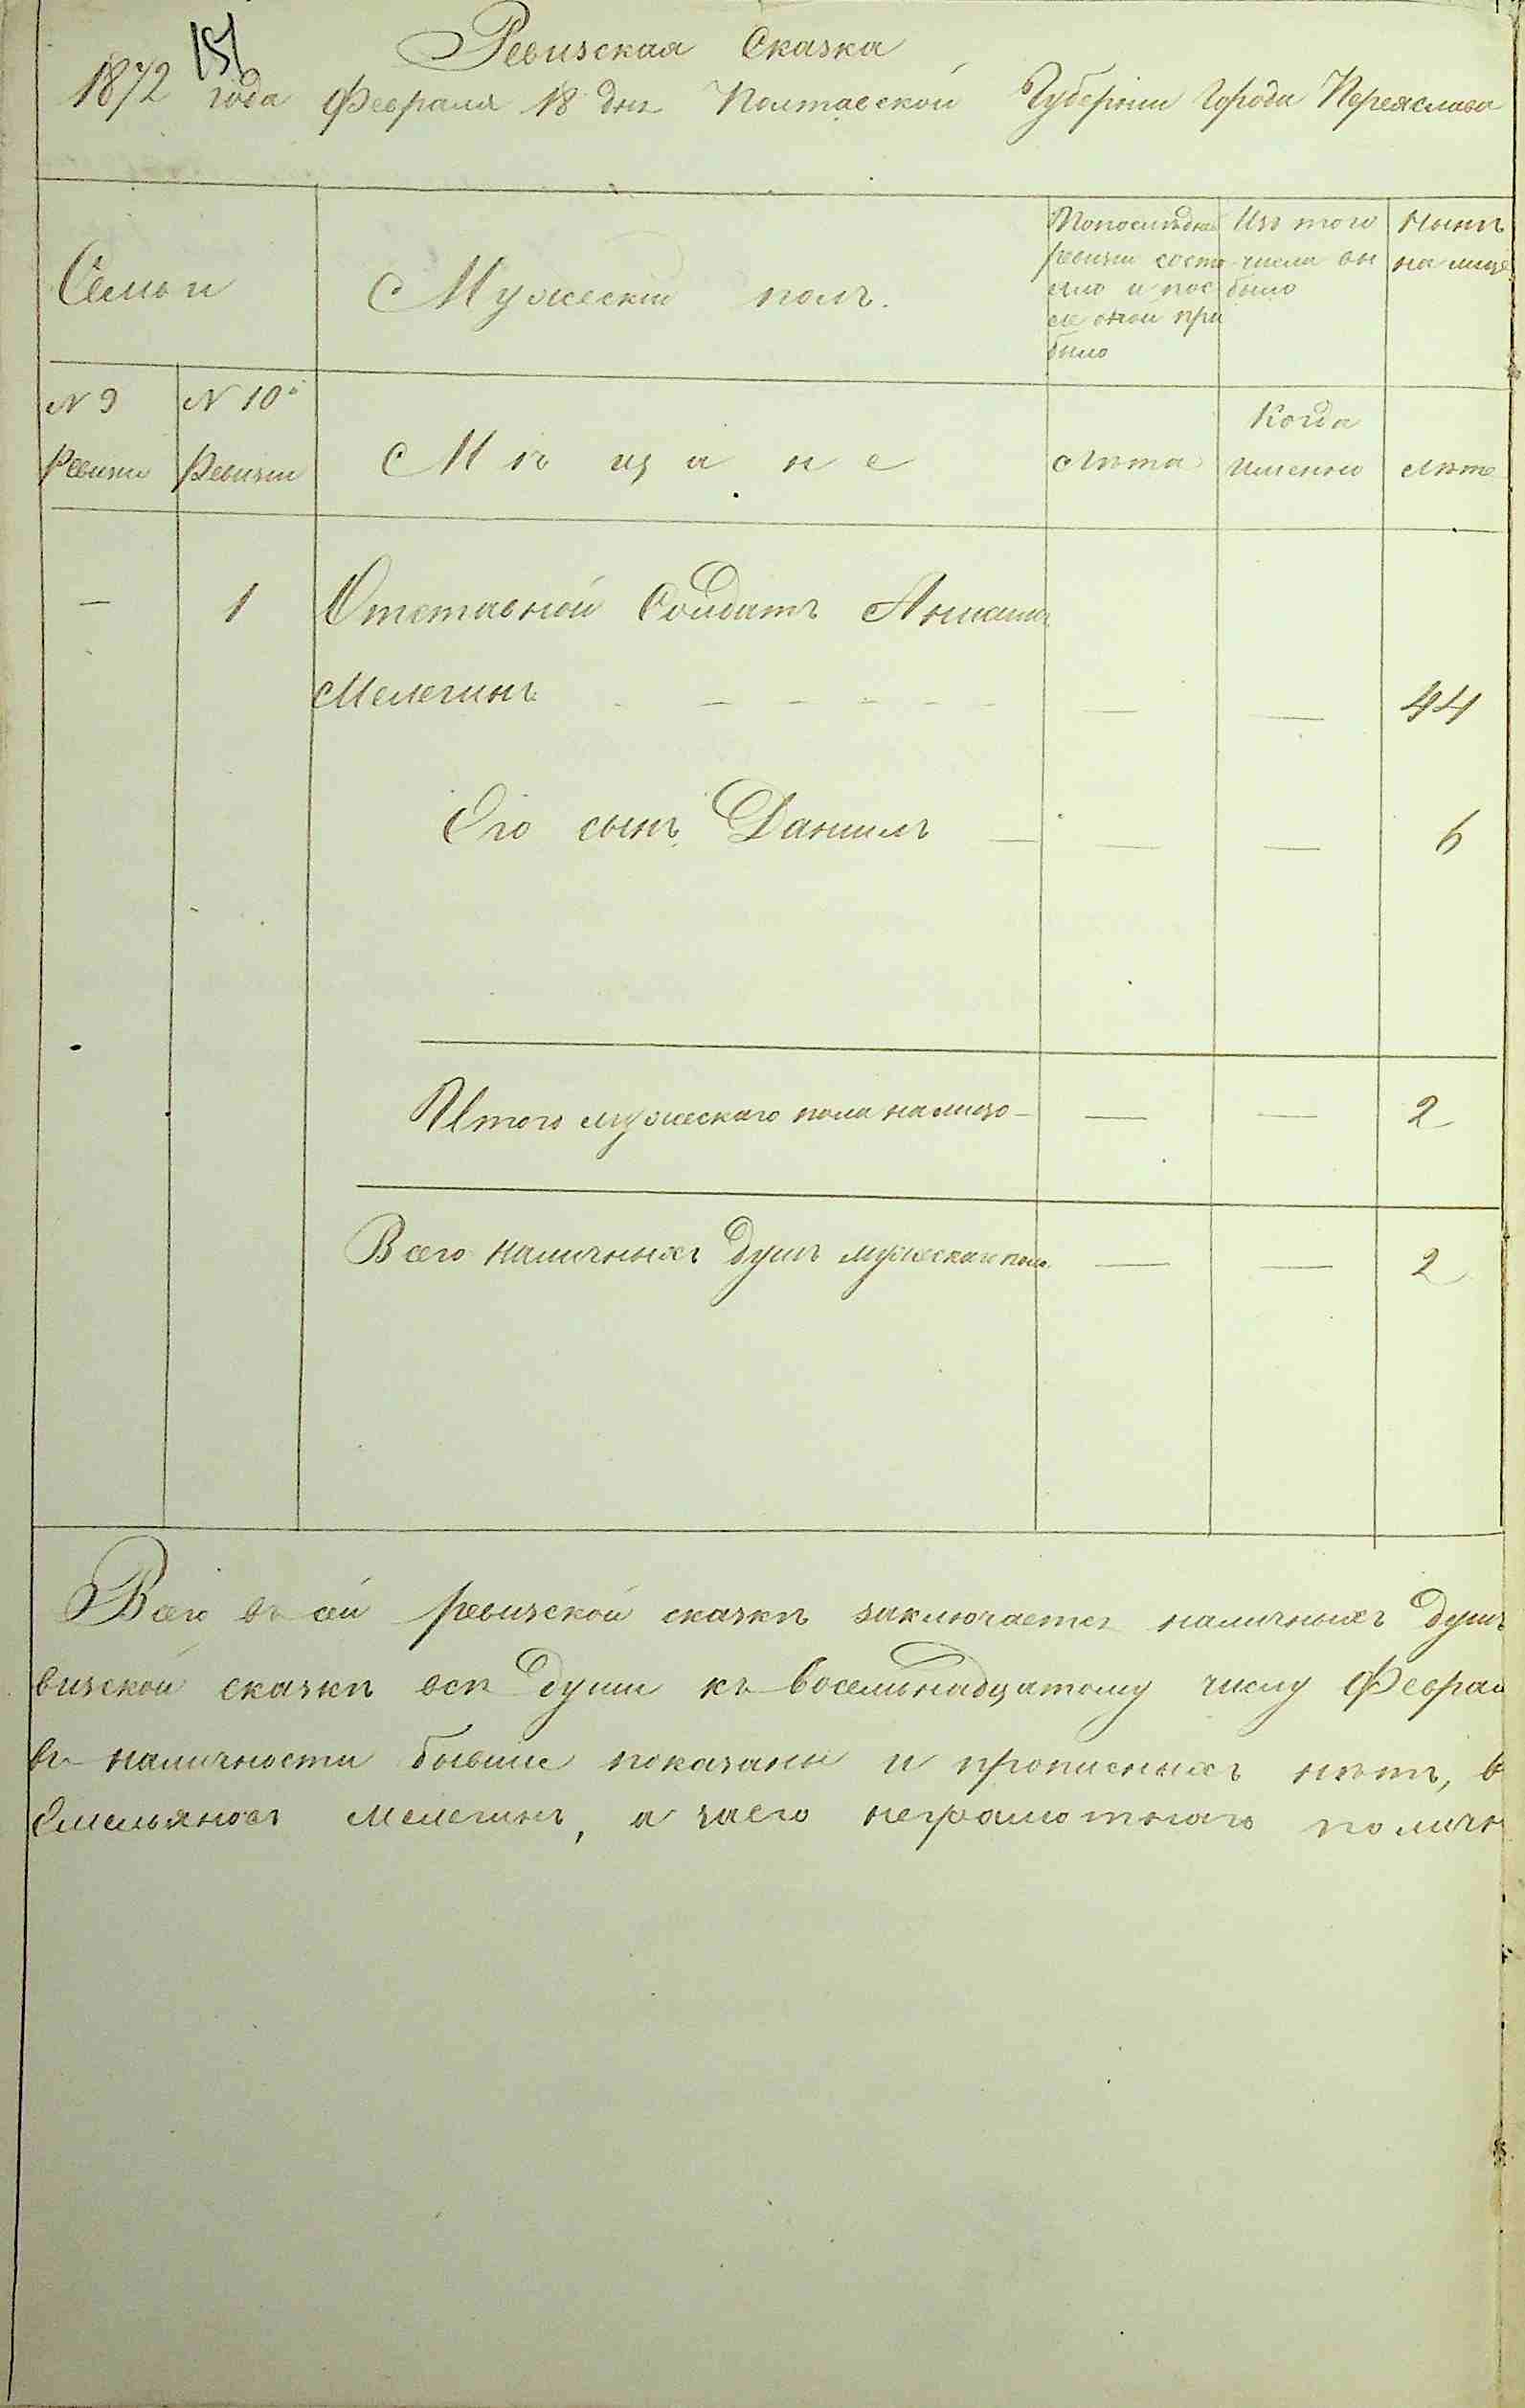 151
Ревизская Сказка
1872 года Февраля 18 дня Полтавской Губернии Города Переяслава
Семьи
Мужеский полъ.
Попоследней
ревизіи состо
яло и пос
ле оной при
было
Изъ того
числа вы
было
Нынѣ
на лице
N 9
Ревизіи
N 10й
Ревизіи
Мѣщане
Лѣта
Когда
именно
Лѣта
— 1 Отставной Солдатъ
Мелегинъ — — — — — — — 44
Его сынъ Даниилъ — — — 6
Итого мужескаго пола налицо — — — 2
Всего наличныхъ душъ мужеска пола — — 2
Всего въ сей ревизской сказкѣ заключается наличныхъ душъ
визской сказкѣ всѣ души къ восемьнадцатому числу Феврал
въ наличности бывшие показаны и прописныхъ нѣтъ, в
Емельяновъ Мелегинъ, а заего неграмотнаго поличн